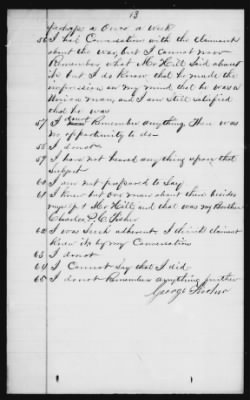 13
perhaps a Once a week
56 I had Conversation with the claimant
about the war, but I cannot now
Remember what Mr Hill Said about
it but I do Know that he made the
impression on my mind that he was a
Union man, and I am Still satisfied
that he was
57 I don't Remember anything There was
no opportunity to do
58 I do not
59 I have not heard any thing upon that
Subject
60 I am not prepared to Say
61 I knew but one man about there besides
my self & Mr Hill and that was my Brother
Charles P. C. Fisher
62 I was Such adherent & I think claimant
knew it by my Conversation
63 I do not
64 I Cannot Say that I did
65 I do not Remember anything further
George Fisher